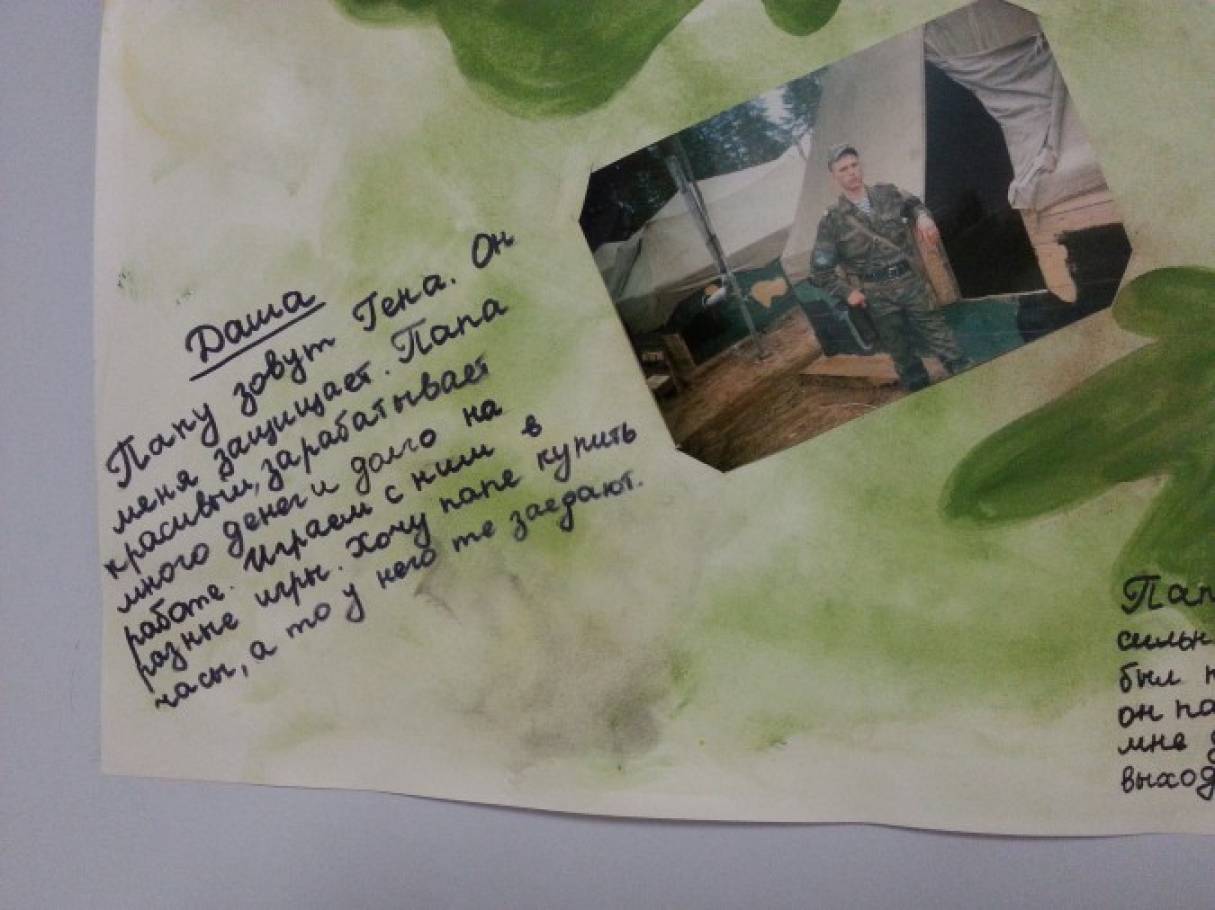 Даша
Папу зовут Гена. Он
меня защищает. Папа
красивый, зарабатывает
много денег и долго на
работе. Играем с ним в
разные игры. Хочу папе купить
часы, а то у него те заедают.
Пап
сильн
был н
он па
мне д
выход